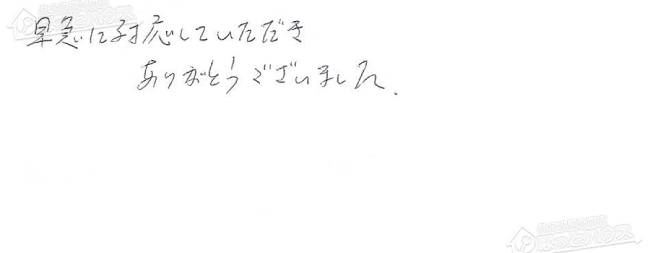 早急に対応していただき
ありがとうございました.